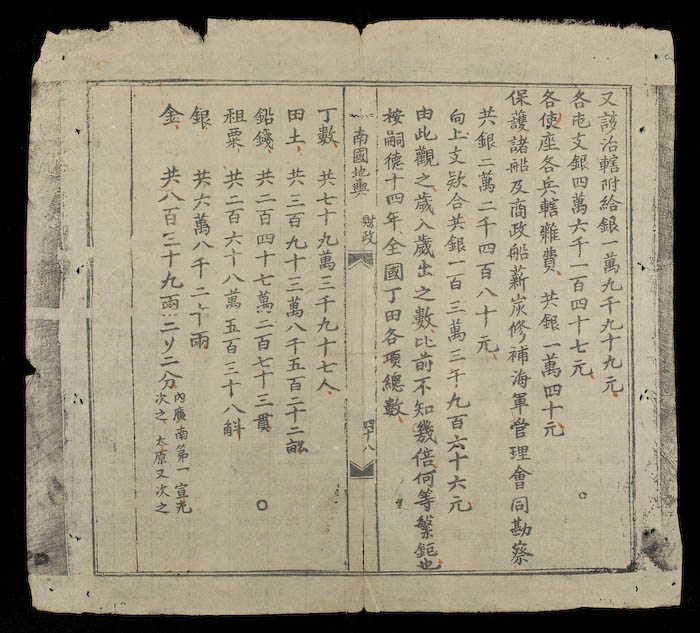 又該治轄附給銀一萬九千九十九元
各屯支銀四萬六千一百四十七元
各使座各兵轄雜費 共銀一萬四十元
保護諸船及商政船薪炭修補海軍管理會同勘察
共銀二萬二千四百八十元
向上支欵合共銀一百三萬三千九百六十六元
由此觀之歲入歲出之數比前不知幾倍何等繁鉅也
按嗣德十四年全國丁田各項總數
南國地輿 財政 四十八
丁數 共七十九萬三千九十七人
田土 共三百九十三萬八千五百二十二畝
鉛錢 共二百四十七萬二百七十三貫
租粟 共二百六十八萬五百三十八斛
銀 共六萬八千二十兩
金 共八百三十九兩二分 內廣南第一宣光
次之太原又次之